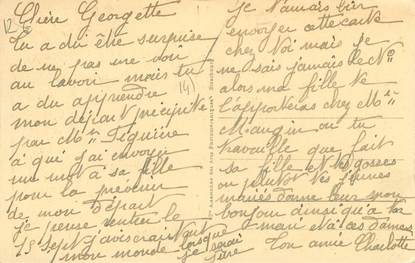 Chère Georgette
Tu a du être surprise
de ne pas me voir
au lavoir mais tu
a du apprendre
mon départ précipité
par Mme Figuière
à qui j'ai envoyer
un mot à sa fille
pour la prévenir
de mon Départ
je pense rentrer le
15 Sept j'aviserait tout
mon monde lorsque
je serai
sûre
je t'aurais bien
envoyer cette carte
chez toi mais je
ne sais jamais le No
alors ma fille te
l'apporteras chez Mme
Maugin ou tu
travaille que fait
sa fille et tes gosses
ou plutôt tes jeunes
mariés donne leur mon
bonjour ainsi qu'a ton
mari et à ces Dames
Ton amie Charlotte